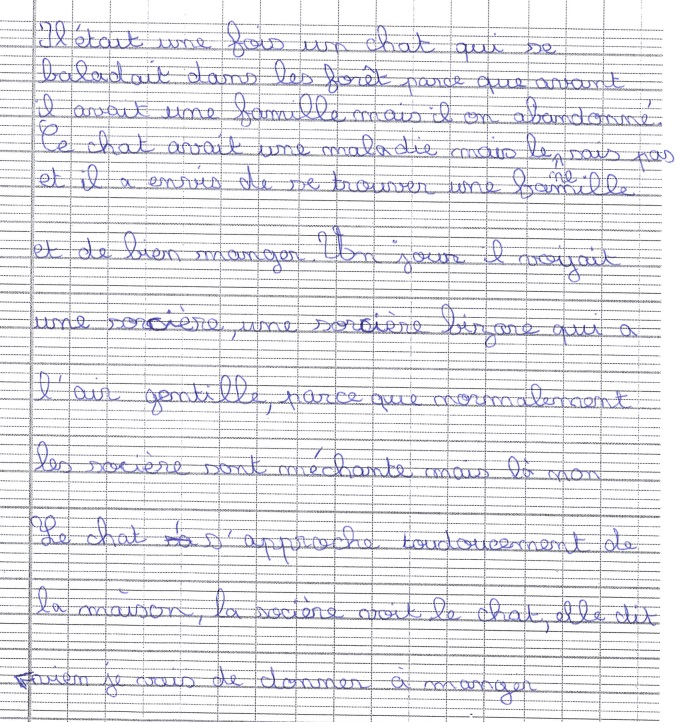 Il était une fois un chat qui se
baladait dans les forêt parce que avant
il avait une famille mais il on abandonné.
Ce chat avait une maladie mais le sais pas
ne
et il a envis de se trouver une famille
et de bien manger. Un jour il voyait
une sorcière, une sorcière bizare qui a
l'air gentille, parce que normalement
les socière sont méchante mais là non
Le chat s'approche toudoucement de
la maison, la socière voit le chat, elle dit
vien je vais de donner à manger